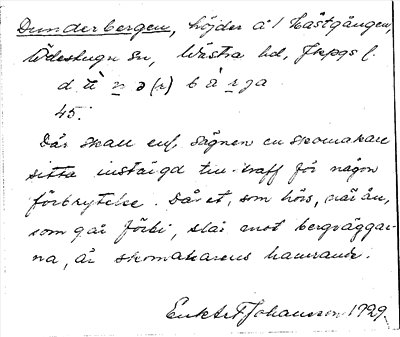 Dunderbergen, höjder å / Hästgången,
Ödeshugn sn, Västra hd, Jkpgs l.
d u n ə (r) b ä r j a
45.
Där skall enl. sägnen en skomakare
sitta instängd till straff för någon
förbrytelse. Då det, som hörs, när ån,
som går förbi, slår mot bergväggar-
na, är skomakarens hamrande.
Enl. Johansson 1929.